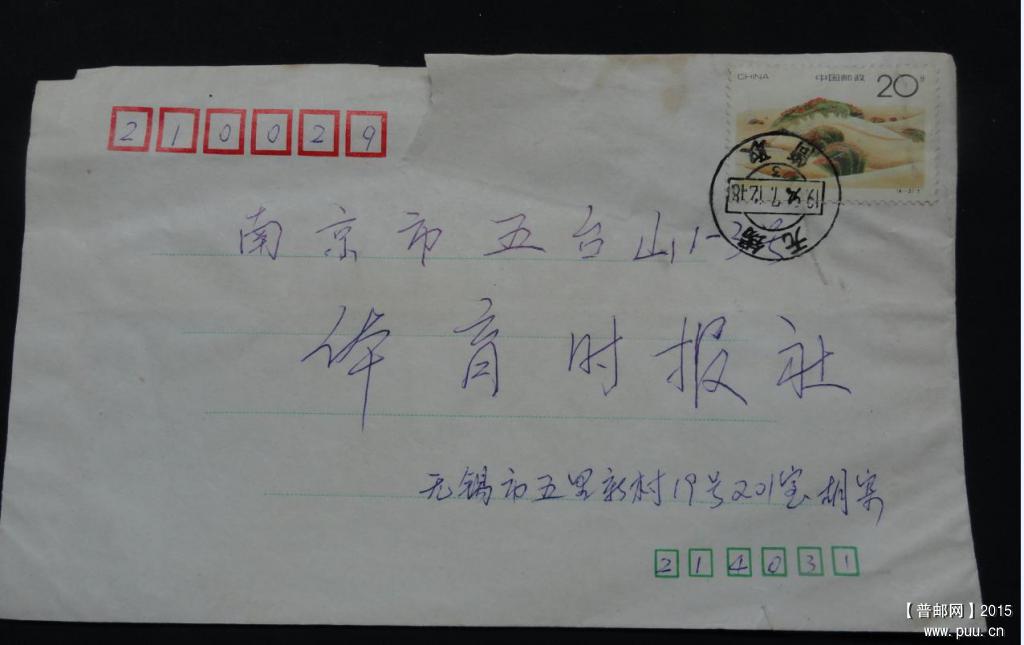 210029
CHINA 中国邮政 20分
南京市五台山1-3号
体育时报社
无锡
19 7.12.18
筒取
3
无锡市五里新村19号201室 胡寄
214031
【普邮网】2015
www.puu.cn